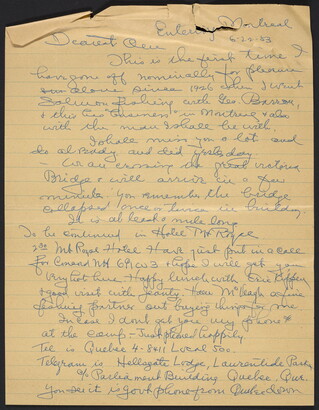 Entering Montreal
6-20-53
Dearest Own
This is the first time I
have gone off nominally for pleasure
alone since 1926 when I went
Salmon fishing with Geo. Barron,
& this has "business" in Montreal & also
with the man I shall be with.
I shall miss you a lot and
do already and did yesterday.
We are crossing the great Victoria
Bridge & will arrive in a few
minutes. You remember the bridge
collapsed once or twice in building.
It is at least a mile long.
To be continued in Hotel Mt Royal
Mt Royal Hotel Have just put in a call
for and hope I will get you
Happy lunch with Eric
& good visit with
fishing partner out buying things for me
In case I don't get you, my phone #
at the camp - Just phoned happily
Tel is Quebec 4-8411 Local 500.
Telegram is Hellsgate Lodge, Laurentide Park,
c/o Parliament Building Quebec. Que.
You see it is gov't phone from Quebec down